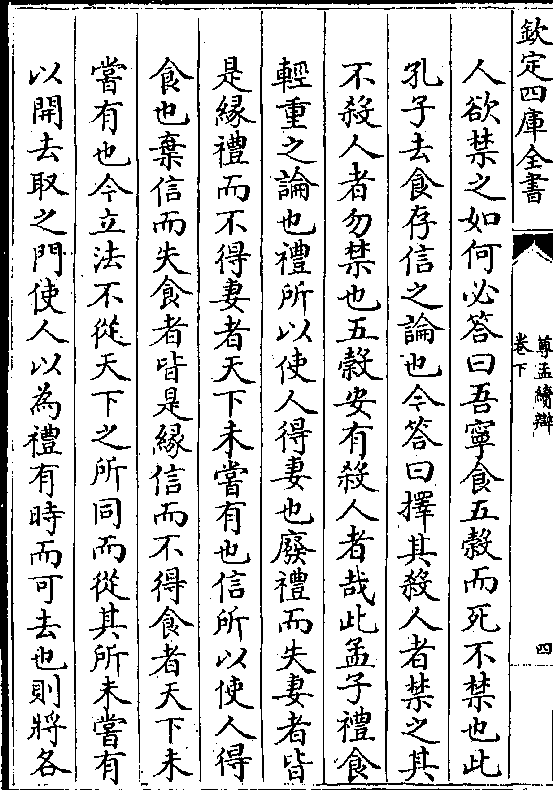 欽定四庫全書
尊孟續辯
卷下
四
人欲禁之如何必答曰吾寧食五穀而死不禁也此
孔子去食存信之論也今答曰擇其殺人者禁之其
不殺人者勿禁也五穀安有殺人者哉此孟子禮食
輕重之論也禮所以使人得妻也廢禮而失妻者皆
是緣禮而不得妻者天下未嘗有也信所以使人得
食也棄信而失食者皆是緣信而不得食者天下未
嘗有也今立法不從天下之所同而從其所未嘗有
以開去取之門使人以為禮有時而可去也則將各